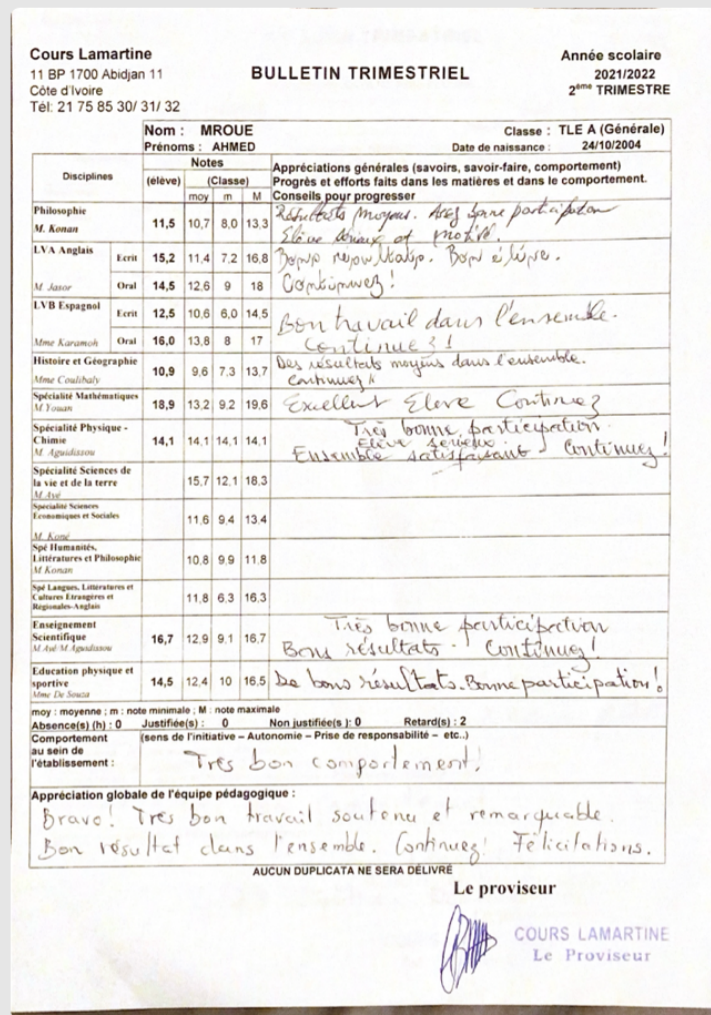 Cours Lamartine
11 BP 1700 Abidjan 11
Côte d'Ivoire
Tél: 21 75 85 30/ 31/ 32
BULLETIN TRIMESTRIEL
Année scolaire
2021/2022
2ème TRIMESTRE
Nom : MROUE
Prénoms : AHMED
Classe : TLE A (Générale)
Date de naissance : 24/10/2004
Disciplines
Notes
(élève) (Classe)
moy m M
Appréciations générales (savoirs, savoir-faire, comportement)
Progrès et efforts faits dans les matières et dans le comportement.
Conseils pour progresser
Philosophie
M. Konan
11,5 10,7 8,0 13,3
Résultats moyens. Assez bonne participation
Elève sérieux et motivé.
LVA Anglais
M Jasor
Ecrit 15,2 11,4 7,2 16,8
Oral 14,5 12,6 9 18
Bons résultats. Bon élève.
Continuez!
LVB Espagnol
Mme Karamoh
Ecrit 12,5 10,6 6,0 14,5
Oral 16,0 13,8 8 17
Bon travail dans l'ensemble.
Continuez!
Histoire et Géographie
Mme Coulibaly
10,9 9,6 7,3 13,7
Des résultats moyens dans l'ensemble.
Continuez!!
Spécialité Mathématiques
M Youan
18,9 13,2 9,2 19,6
Excellent Eleve Continuez
Spécialité Physique -
Chimie
M. Aguidissou
14,1 14,1 14,1 14,1
Très bonne participation.
Elève sérieux.
Ensemble satisfaisant - Continuez!
Spécialité Sciences de
la vie et de la terre
M Avé
15,7 12,1 18,3
Spécialité Sciences
Economiques et Sociales
M. Koné
11,6 9,4 13,4
Spé Humanités,
Littératures et Philosophie
M Konan
10,8 9,9 11,8
Spé Langues, Littératures et
Cultures Etrangères et
Régionales-Anglais
11,8 6,3 16,3
Enseignement
Scientifique
M Avé/M Aguidissou
16,7 12,9 9,1 16,7
Très bonne participation
Bons résultats. Continuez!
Education physique et
sportive
Mme De Souza
14,5 12,4 10 16,5
De bons résultats. Bonne participation!
moy : moyenne ; m : note minimale ; M : note maximale
Absence(s) (h) : 0 Justifiée(s) : 0 Non justifiée(s ): 0 Retard(s) : 2
Comportement
au sein de
l'établissement :
(sens de l'initiative – Autonomie – Prise de responsabilité – etc..)
Tres bon comportement!
Appréciation globale de l'équipe pédagogique :
Bravo! Tres bon travail soutenu et remarquable.
Bon résultat dans l'ensemble. Continuez! Félicitations.
AUCUN DUPLICATA NE SERA DÉLIVRÉ
Le proviseur
COURS LAMARTINE
Le Proviseur